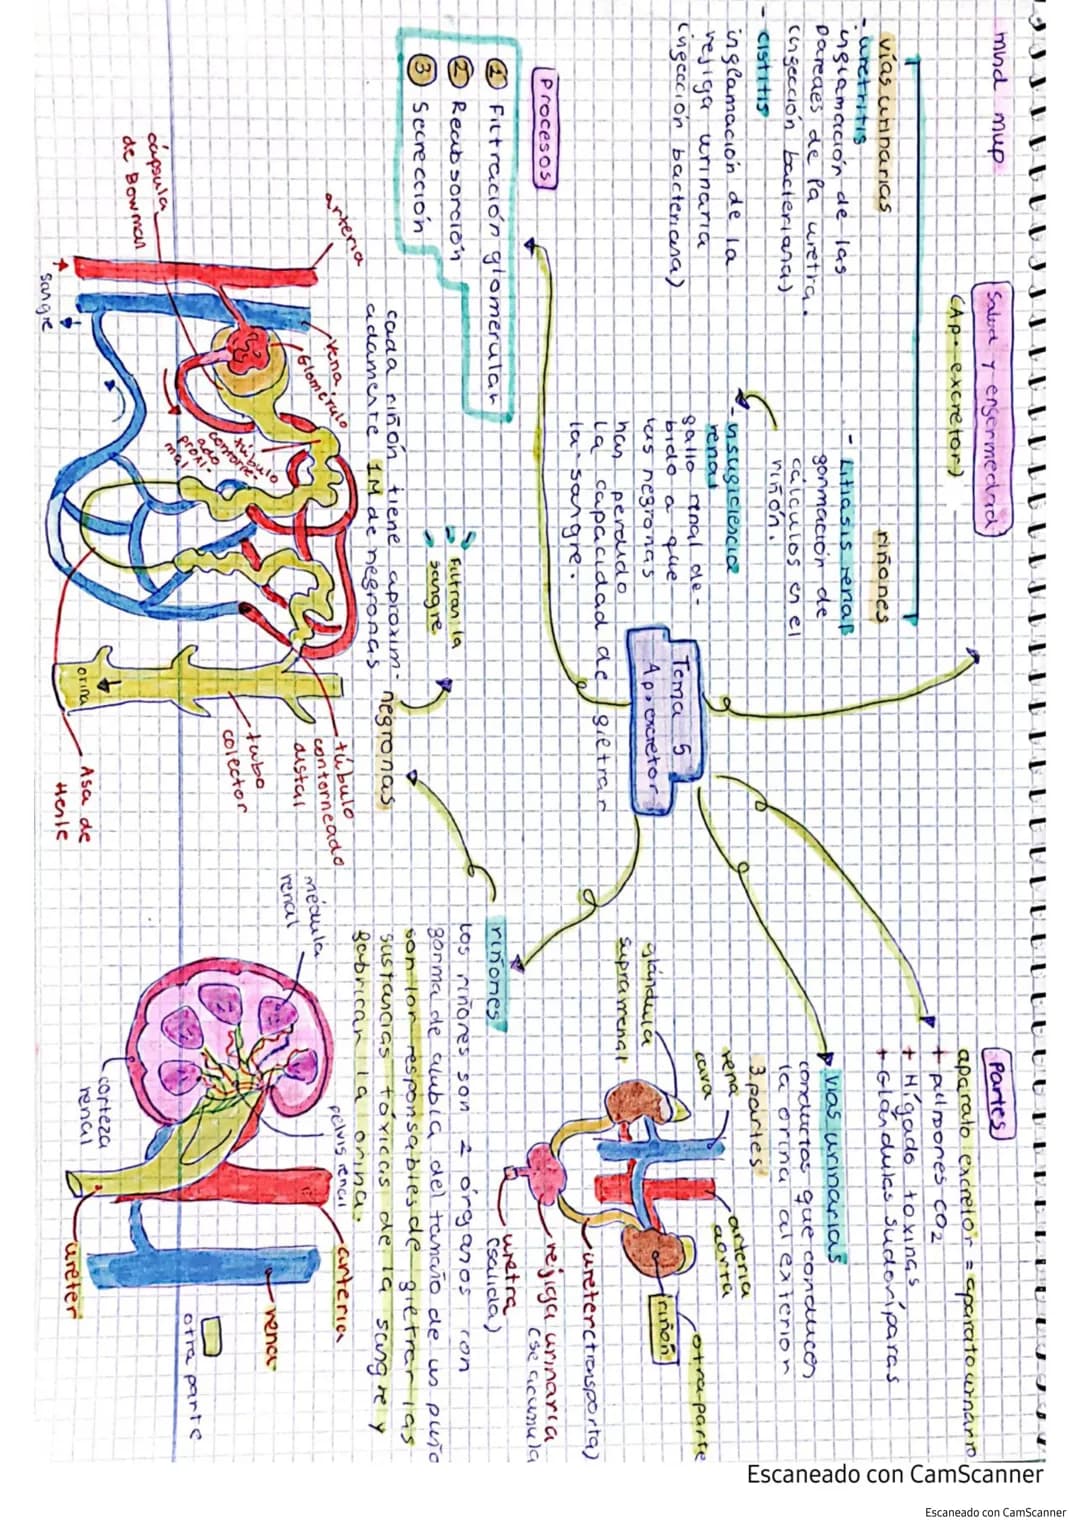 mind mup
Salud y enfermedad
(Ap. excretor)
vías urinarias
- uretritis
inflamación de las
paredes de la uretra.
(infección bacteriana)
- cistitis
inflamación de la
vejiga urinaria
(infección bacteriana)
riñones
- Litiasis renal
formación de
cálculos en el
riñón.
- insuficiencia
renal
fallo renal de-
bido a que
las nefronas
han perdido
la capacidad de filtrar
la sangre.
Tema 5
Ap. excretor
Partes
aparato excretor = aparato urinario
+ pulmones CO2
+ Hígado toxinas
+ Glándulas sudoríparas
vías urinarias
conductos que conducen
la orina al exterior
3 partes
vena
cava
arteria
aorta
glándula
suprarrenal
otra parte
riñón
uréter (transporta)
vejiga urinaria
(se acumula
uretra
(salida)
Procesos
1 Filtración glomerular
2 Reabsorción
3 Secrección
riñones
Los riñones son 2 órganos con
forma de alubia del tamaño de un puño
son los responsables de filtrar las
sustancias tóxicas de la sangre y
fabrican la orina.
Filtran la
sangre
nefronas
cada riñón tiene aproxim-
adamente 1M de nefronas
arteria
vena
Glomérulo
cápsula
de Bowman
sangre
túbulo
contorne-
ado
proxi-
mal
túbulo
contorneado
distal
tubo
colector
orina
Asa de
Henle
médula
renal
corteza
renal
pelvis renal
arteria
vena
uréter
otra parte
Escaneado con CamScanner
Escaneado con CamScanner